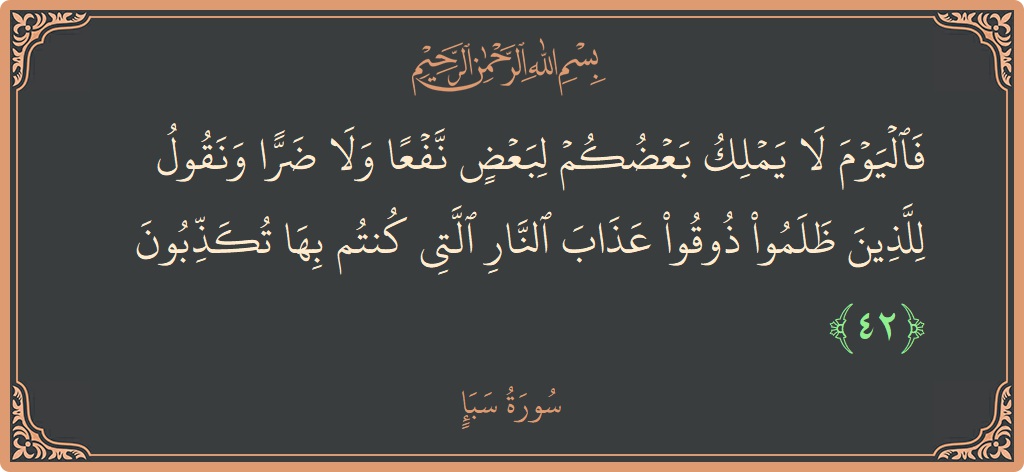 بِسْمِ اللَّهِ الرَّحْمَٰنِ الرَّحِيمِ
فَٱلۡيَوۡمَ لَا يَمۡلِكُ بَعۡضُكُمۡ لِبَعۡضٖ نَّفۡعٗا وَلَا ضَرّٗا وَنَقُولُ
لِلَّذِينَ ظَلَمُواْ ذُوقُواْ عَذَابَ ٱلنَّارِ ٱلَّتِي كُنتُم بِهَا تُكَذِّبُونَ
﴿٤٢﴾
سُورَةُ سَبَإٖ